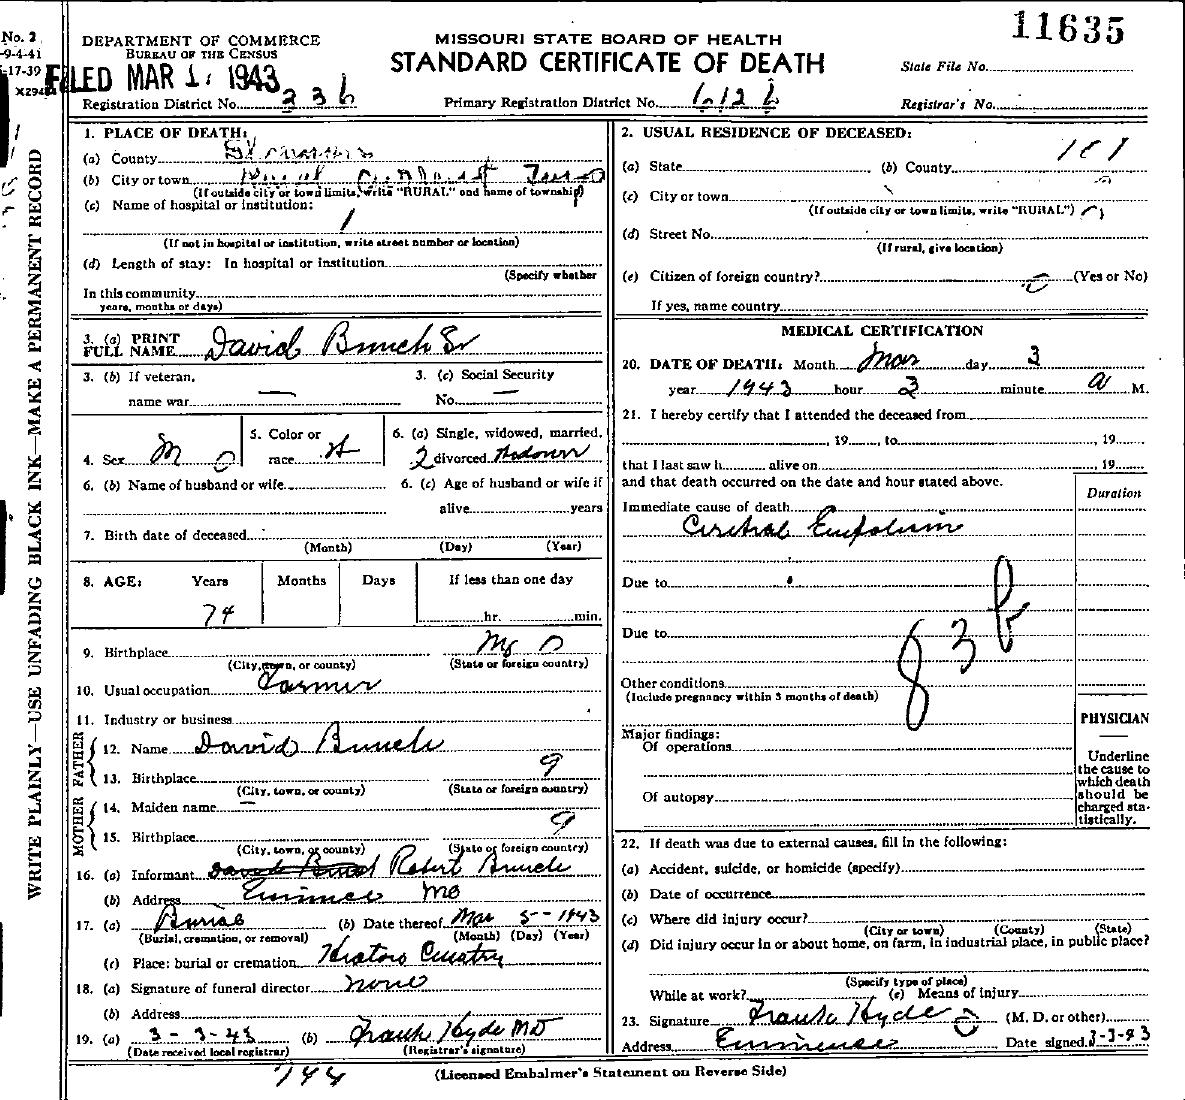 11635
No. 2
-9-4-41
-17-39
X294
DEPARTMENT OF COMMERCE
BUREAU OF THE CENSUS
MISSOURI STATE BOARD OF HEALTH
STANDARD CERTIFICATE OF DEATH
FILED MAR 1, 1943
State File No.
Registration District No. 236
Primary Registration District No. 6126
Registrar's No.
WRITE PLAINLY—USE UNFADING BLACK INK—MAKE A PERMANENT RECORD
1. PLACE OF DEATH:
(a) County
(b) City or town
(If outside city or town limits, write "RURAL" and name of township)
(c) Name of hospital or institution:
(If not in hospital or institution, write street number or location)
(d) Length of stay: In hospital or institution
(Specify whether
In this community
years, months or days)
3. (a) PRINT
FULL NAME David Bunch Sr
3. (b) If veteran,
name war —
3. (c) Social Security
No. —
4. Sex M
5. Color or
race
6. (a) Single, widowed, married,
2 divorced
6. (b) Name of husband or wife
6. (c) Age of husband or wife if
alive years
7. Birth date of deceased
(Month) (Day) (Year)
8. AGE: Years Months Days If less than one day
74 hr. min.
9. Birthplace Mo 0
(City, town, or county) (State or foreign country)
10. Usual occupation Farmer
11. Industry or business
FATHER
12. Name David Bunch
13. Birthplace 9
(City, town, or county) (State or foreign country)
MOTHER
14. Maiden name —
15. Birthplace 9
(City, town, or county) (State or foreign country)
16. (a) Informant Robert Bunch
(b) Address Eminence Mo
17. (a) Burial (b) Date thereof Mar 5-1943
(Burial, cremation, or removal) (Month) (Day) (Year)
(c) Place: burial or cremation
18. (a) Signature of funeral director none
(b) Address
19. (a) 3-3-43 (b) Frank Hyde MD
(Date received local registrar) (Registrar's signature)
2. USUAL RESIDENCE OF DECEASED:
(a) State (b) County
(c) City or town
(If outside city or town limits, write "RURAL")
(d) Street No.
(If rural, give location)
(e) Citizen of foreign country? (Yes or No)
If yes, name country
MEDICAL CERTIFICATION
20. DATE OF DEATH: Month Mar day 3
year 1943 hour 3 minute a M.
21. I hereby certify that I attended the deceased from
, 19 , to , 19
that I last saw h alive on , 19
and that death occurred on the date and hour stated above.
Duration
Immediate cause of death
Due to
Due to
83b
Other conditions
(Include pregnancy within 3 months of death)
PHYSICIAN
Underline
the cause to
which death
should be
charged sta-
tistically.
Major findings:
Of operations
Of autopsy
22. If death was due to external causes, fill in the following:
(a) Accident, suicide, or homicide (specify)
(b) Date of occurrence
(c) Where did injury occur?
(City or town) (County) (State)
(d) Did injury occur in or about home, on farm, in industrial place, in public place?
(Specify type of place)
While at work? (e) Means of injury
23. Signature Frank Hyde (M. D. or other)
Address Eminence Date signed 3-3-43
(Licensed Embalmer's Statement on Reverse Side)